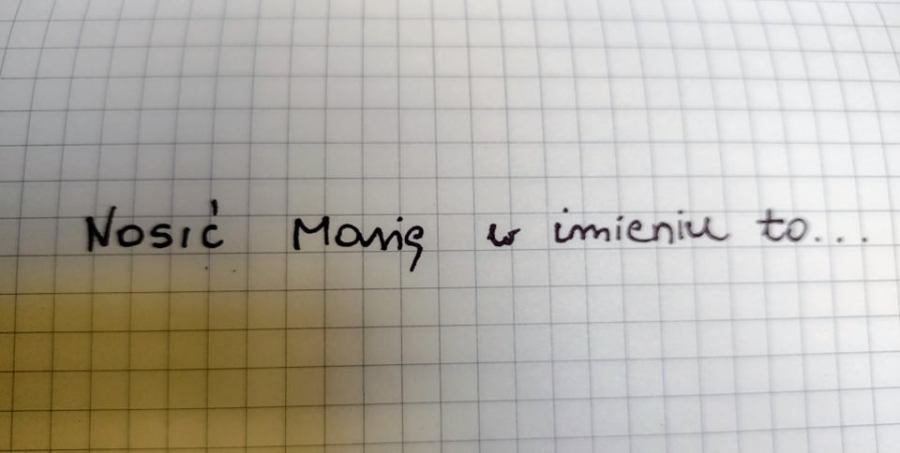 Nosić Marię w imieniu to...